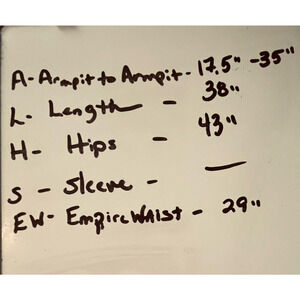 A- Armpit to Armpit - 17.5" -35"
L- Length - 38"
H- Hips - 43"
S - Sleeve - —
EW- Empire Waist - 29"